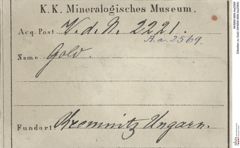 K. K. Mineralogisches Museum.
Acq. Post V. d. N. 2221.
A.a. 2569.
Name Gold.
Fundort Kremnitz Ungarn.